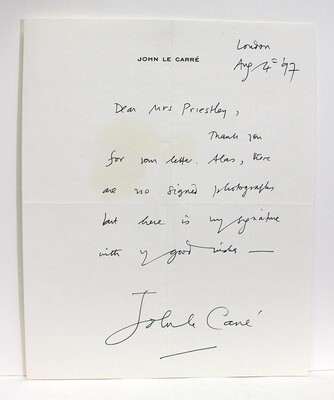 London
JOHN LE CARRÉ
Aug 4th '97
Dear Mrs Priestley,
Thank you
for your letter. Alas, there
are no signed photographs
but here is my signature
with my good wishes —
John le Carré